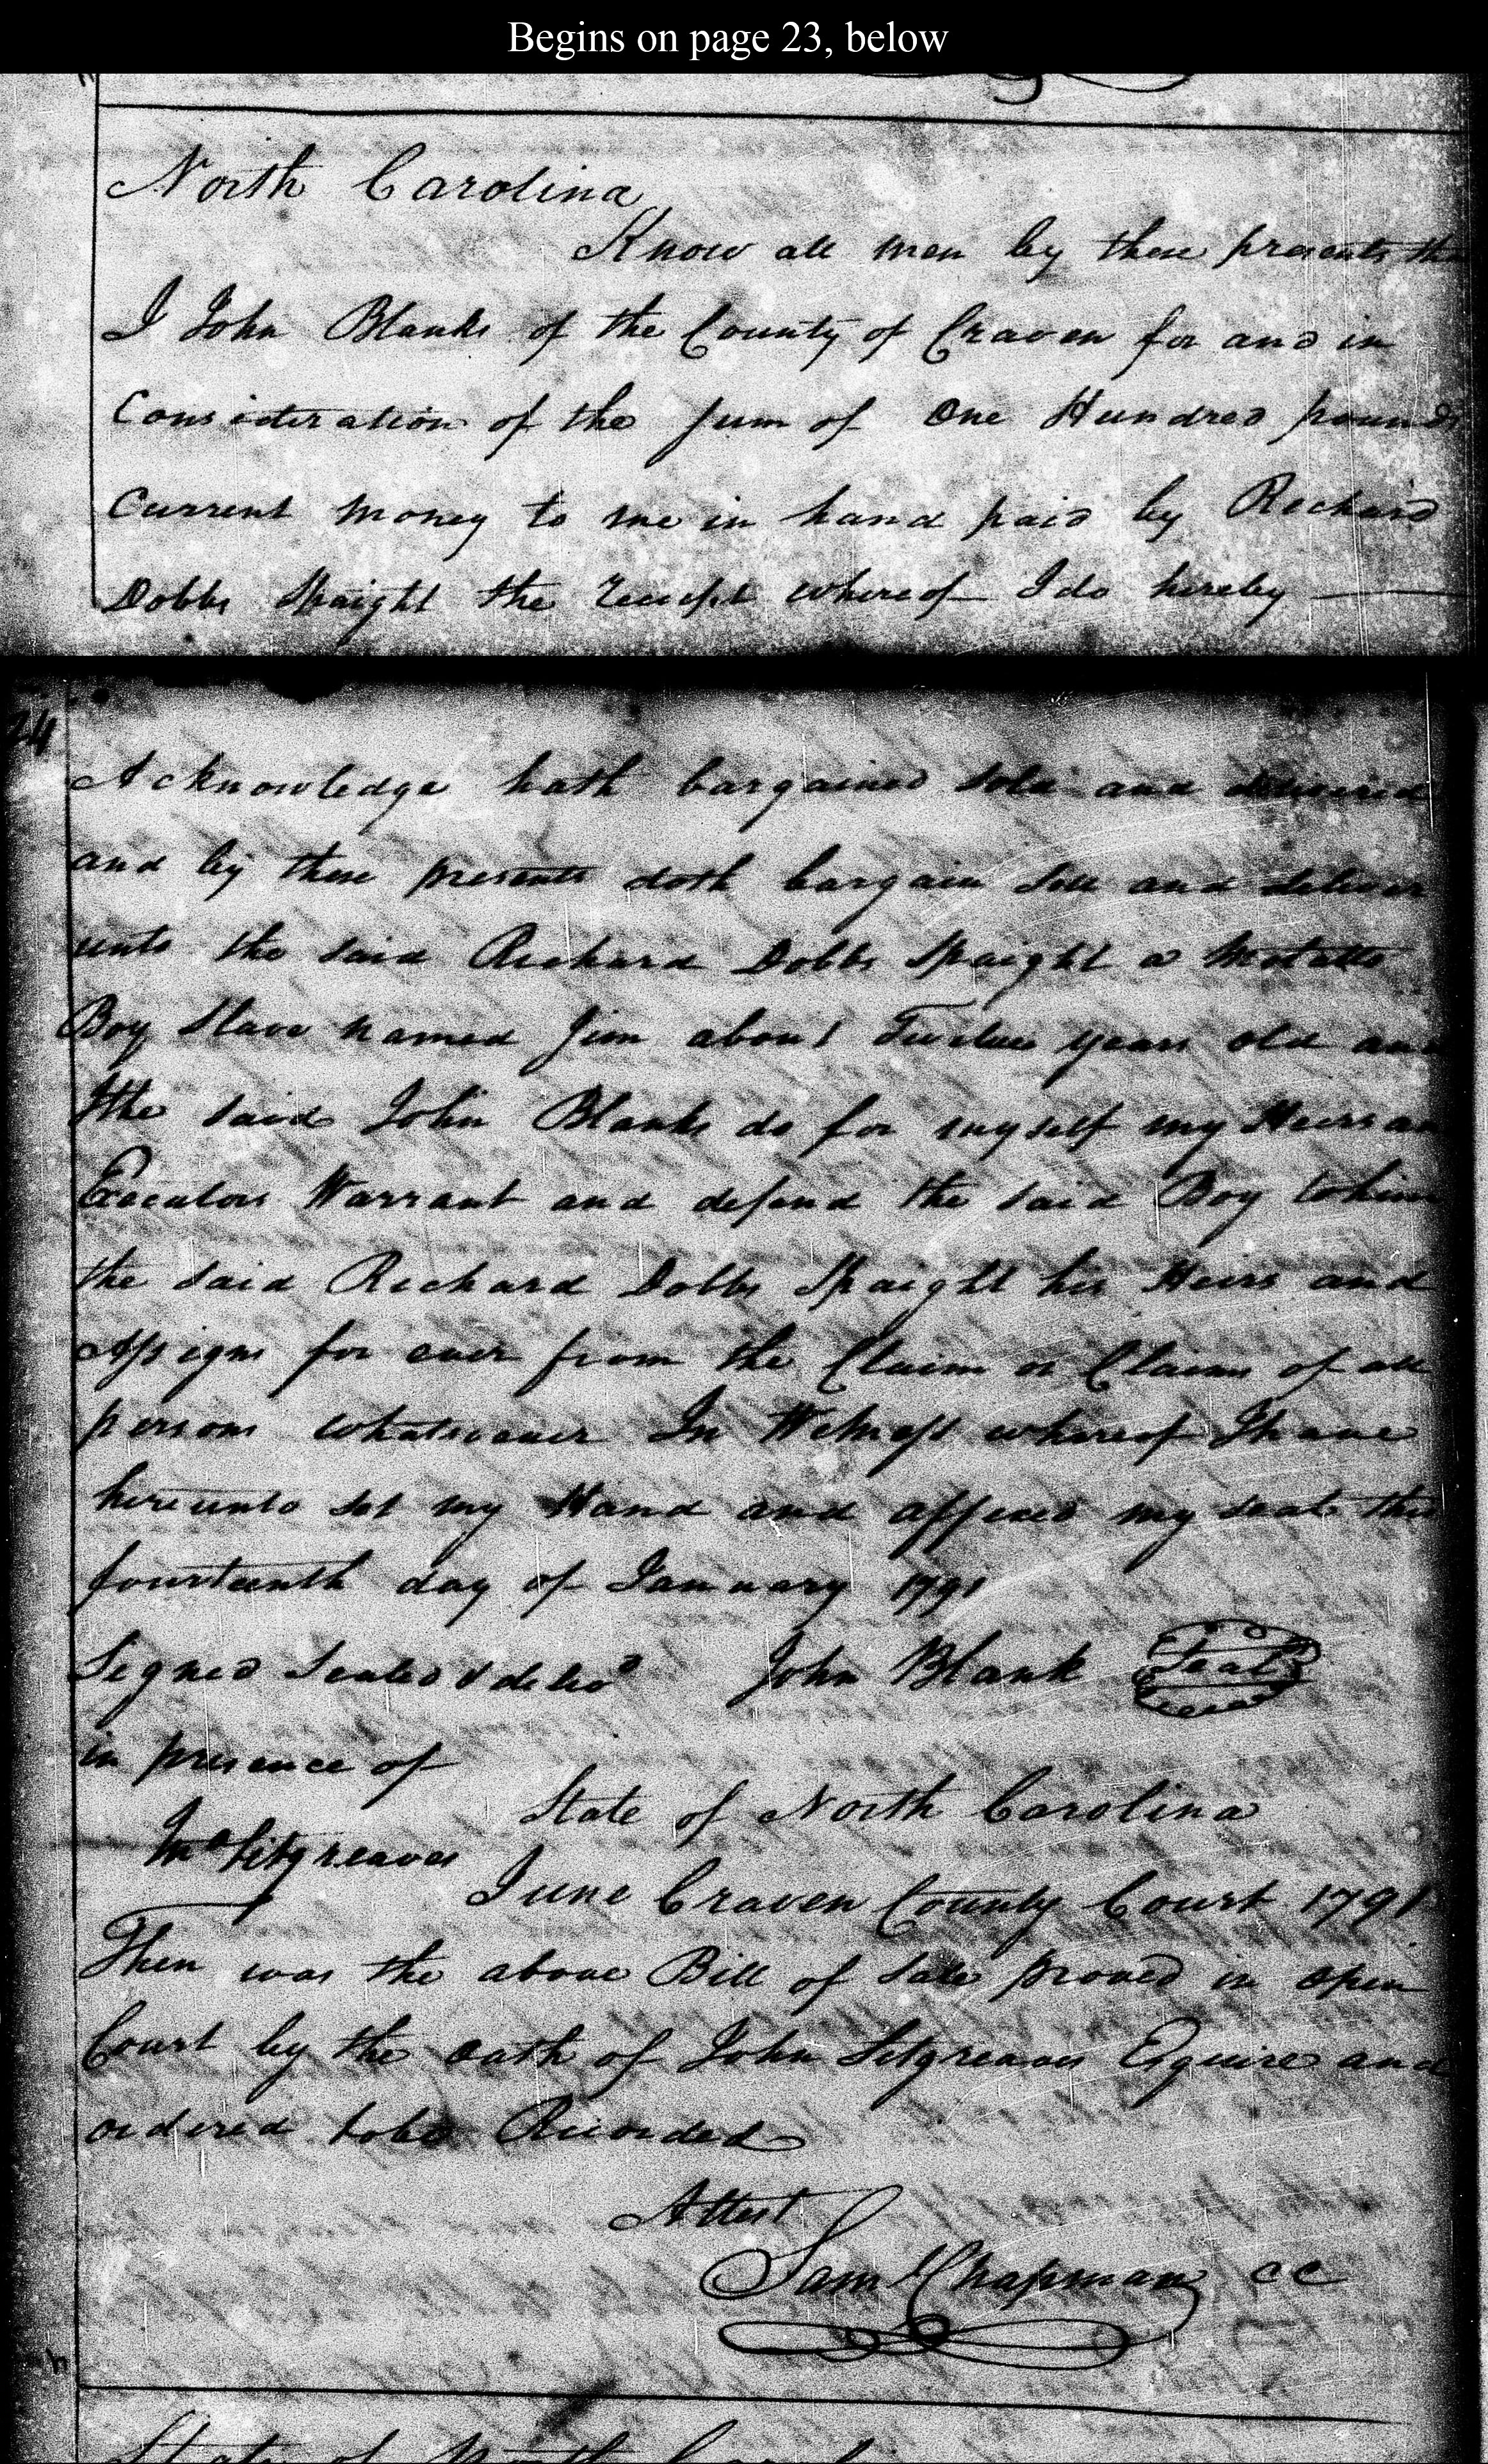 Begins on page 23, below
North Carolina
Know all men by these presents tha
I John Blanks of the County of Craven for and in
Consideration of the sum of One Hundred pounds
Current money to me in hand paid by Richard
Dobbs Spaight the receipt whereof I do hereby
24
Acknowledge hath bargained sold and delivered
and by these presents doth bargain sell and deliver
unto the said Richard Dobbs Spaight a Molatto
Boy Slave named Jim about Twelve years old and
I the said John Blanks do for myself my Heirs an
Executors Warrant and defend the said Boy to him
the said Richard Dobbs Spaight his Heirs and
Assigns for ever from the Claim or Claims of all
persons whatsoever In Witness whereof I have
hereunto set my Hand and affixed my seal this
fourteenth day of January 1791
Signed Sealed & delivd John Blank Seal
in presence of
State of North Carolina
Jno Sitgreaves
June Craven County Court 1791
Then was the above Bill of Sale proved in open
Court by the oath of John Sitgreaves Esquire and
ordered to be Recorded
Attest
Sam Chapman CC
State of North Carolina